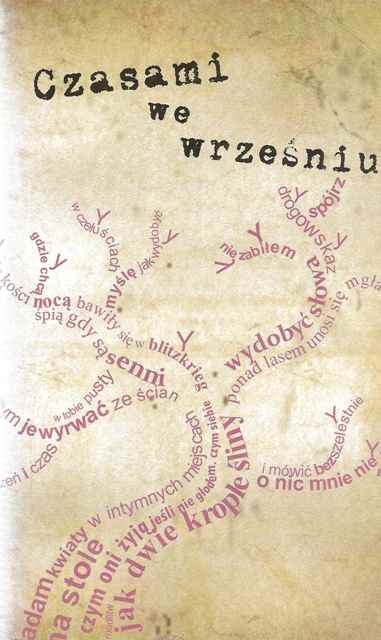 Czasami
we
wrześniu
spójrz
drogowskaz
w czeluściach
myślę jak wydobyć
gdzie chcą
nie zabiłem
kości nocą bawiły się w blitzkrieg
śpią gdy są senni
wydobyć słowa
ponad lasem unosi się mgła
w tobie pusty
je wyrwać ze ścian
i czas
kwiaty w intymnych miejscach
czym oni żyją jeśli nie głodem, czym siebie
jak dwie krople śliny
i mówić bezszelestnie
o nic mnie nie
na stole